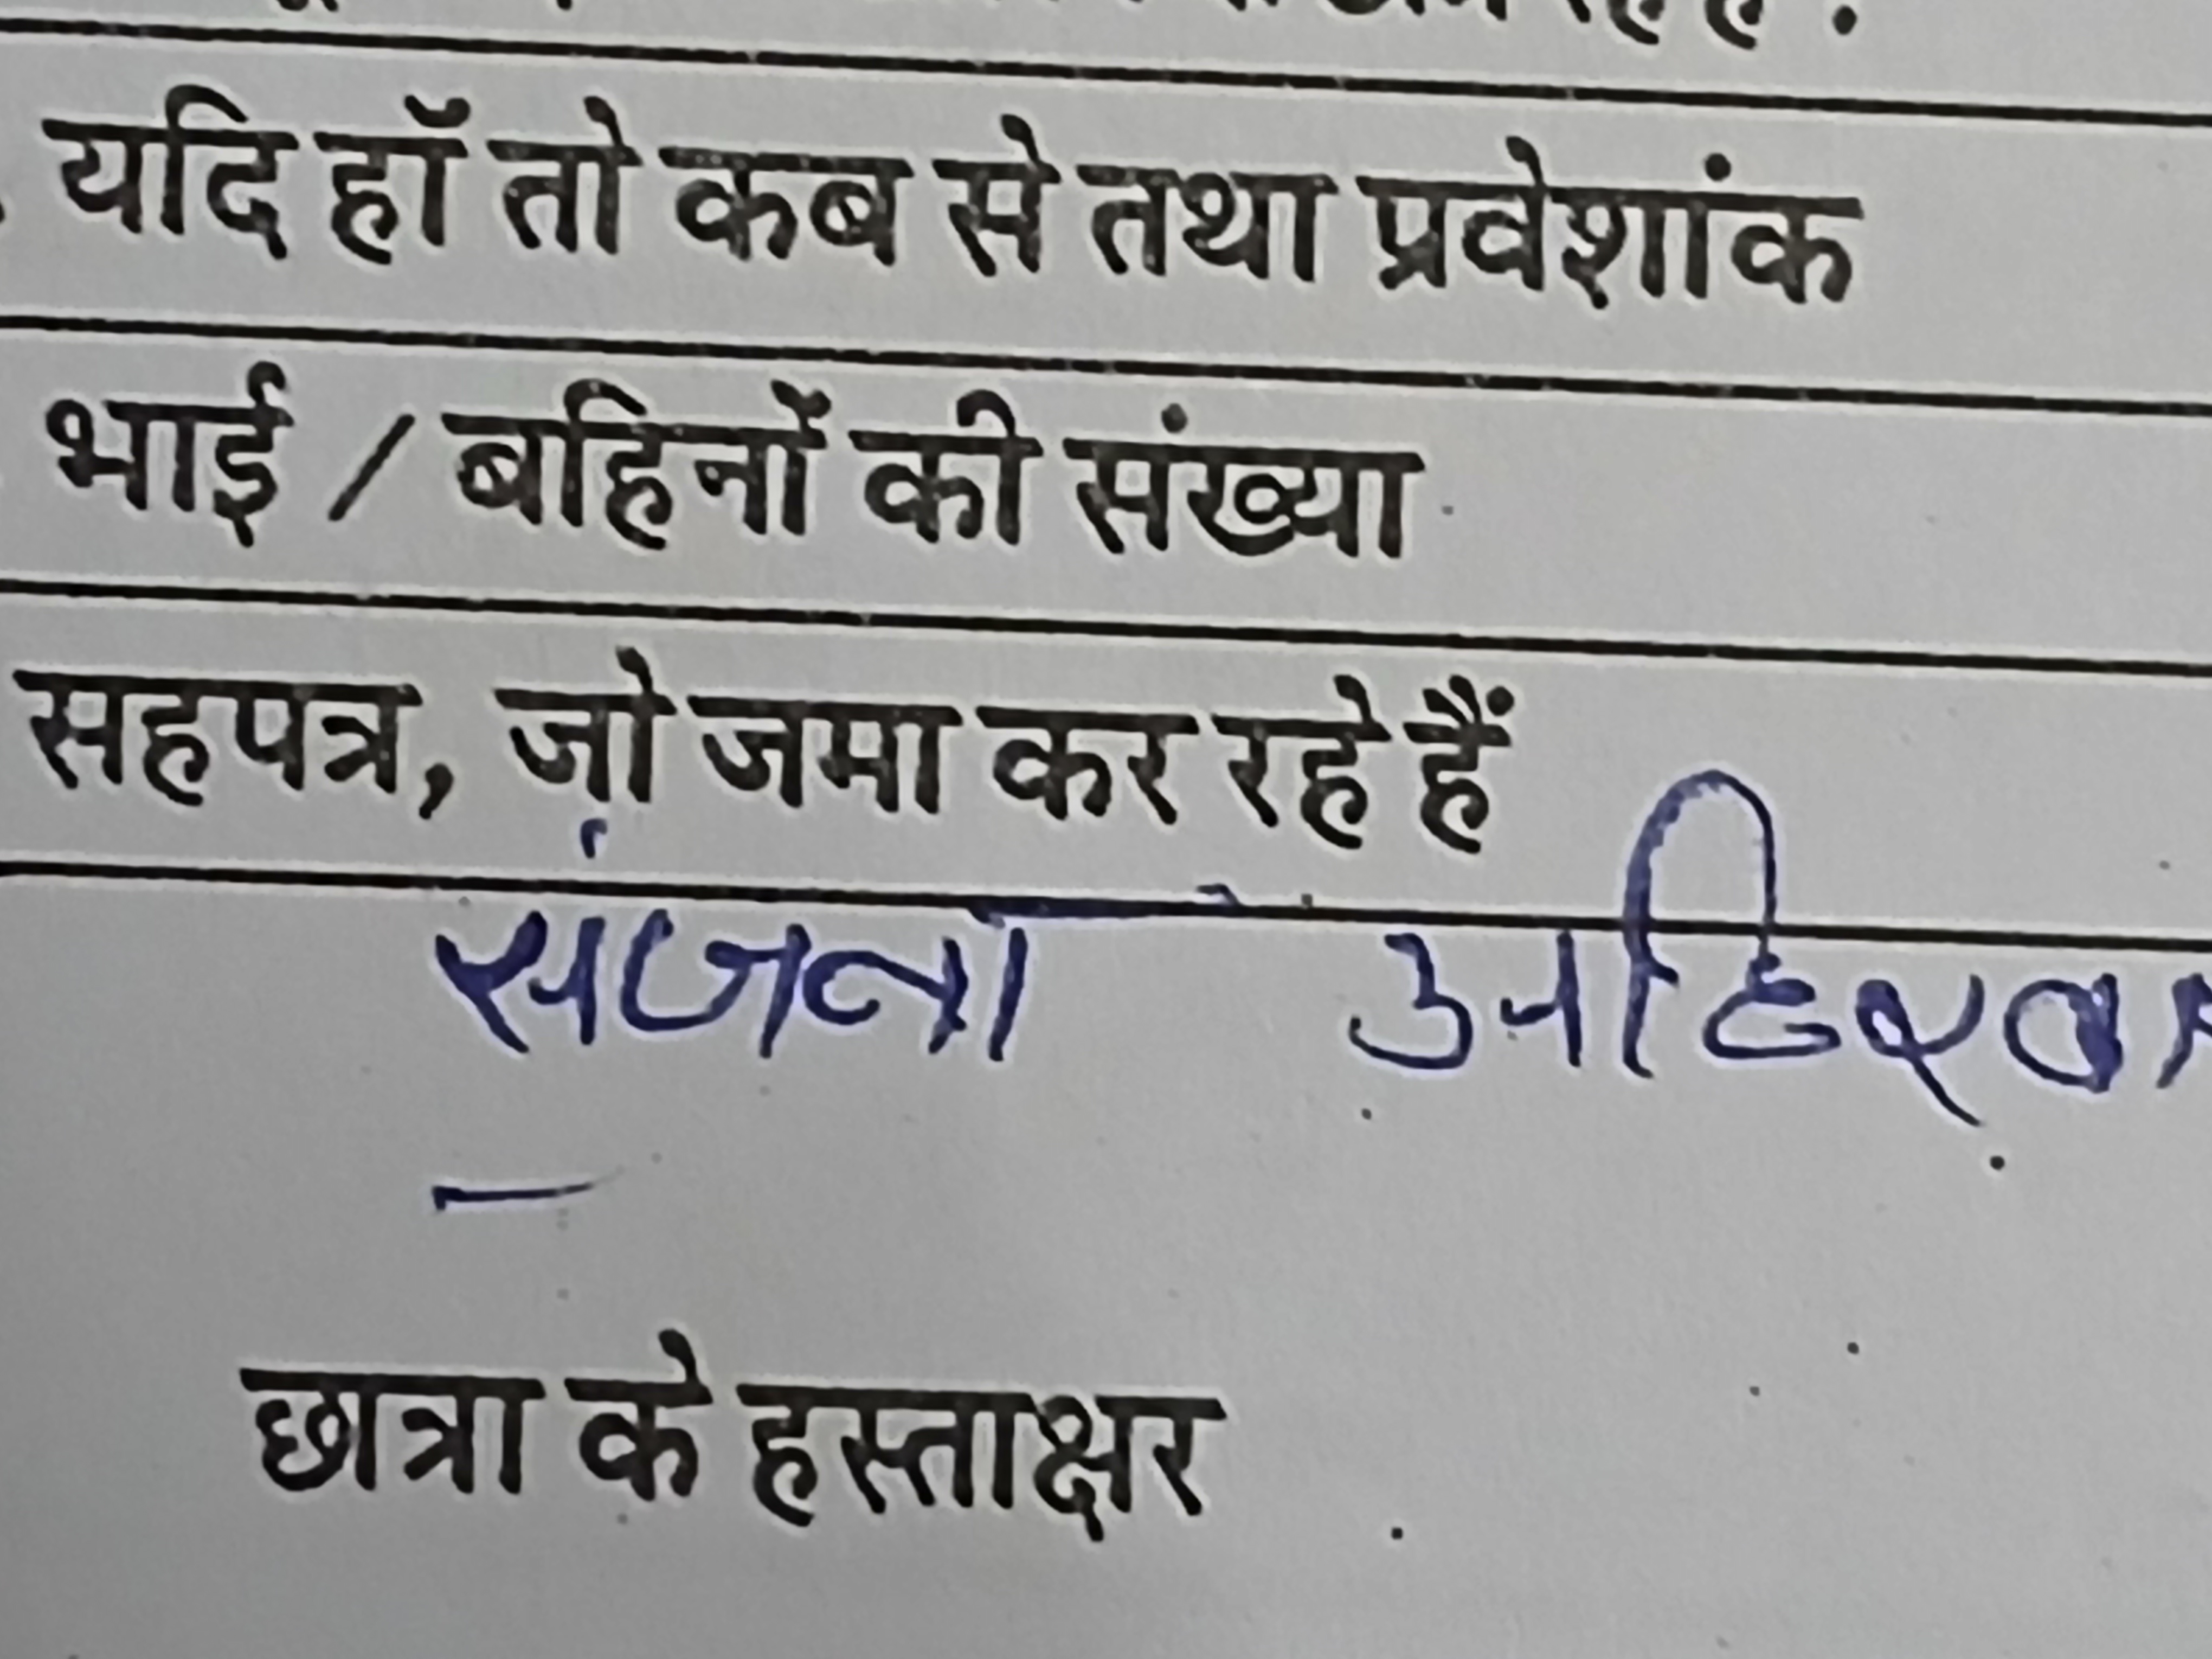 यदि हाॅ तो कब से तथा प्रवेशांक
भाई / बहिनों की संख्या
सहपत्र, जो जमा कर रहे हैं
संजना
छात्रा के हस्ताक्षर